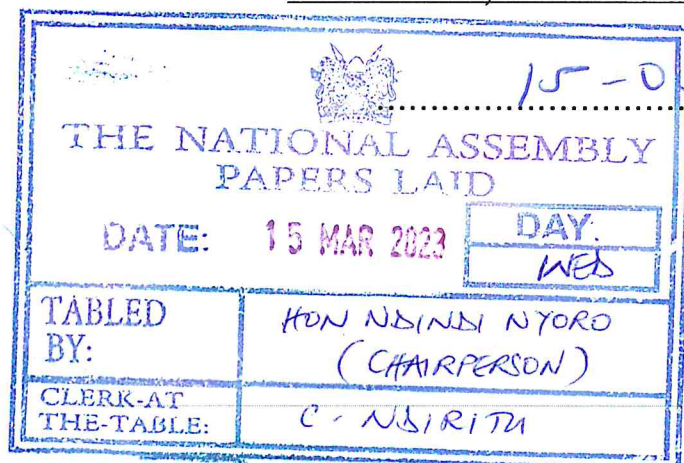 15-0
THE NATIONAL ASSEMBLY
PAPERS LAID
DATE: 15 MAR 2023
DAY.
WED
TABLED
BY:
HON NDINDI NYORO
(CHAIRPERSON)
CLERK-AT
THE-TABLE:
C - NDIRITU